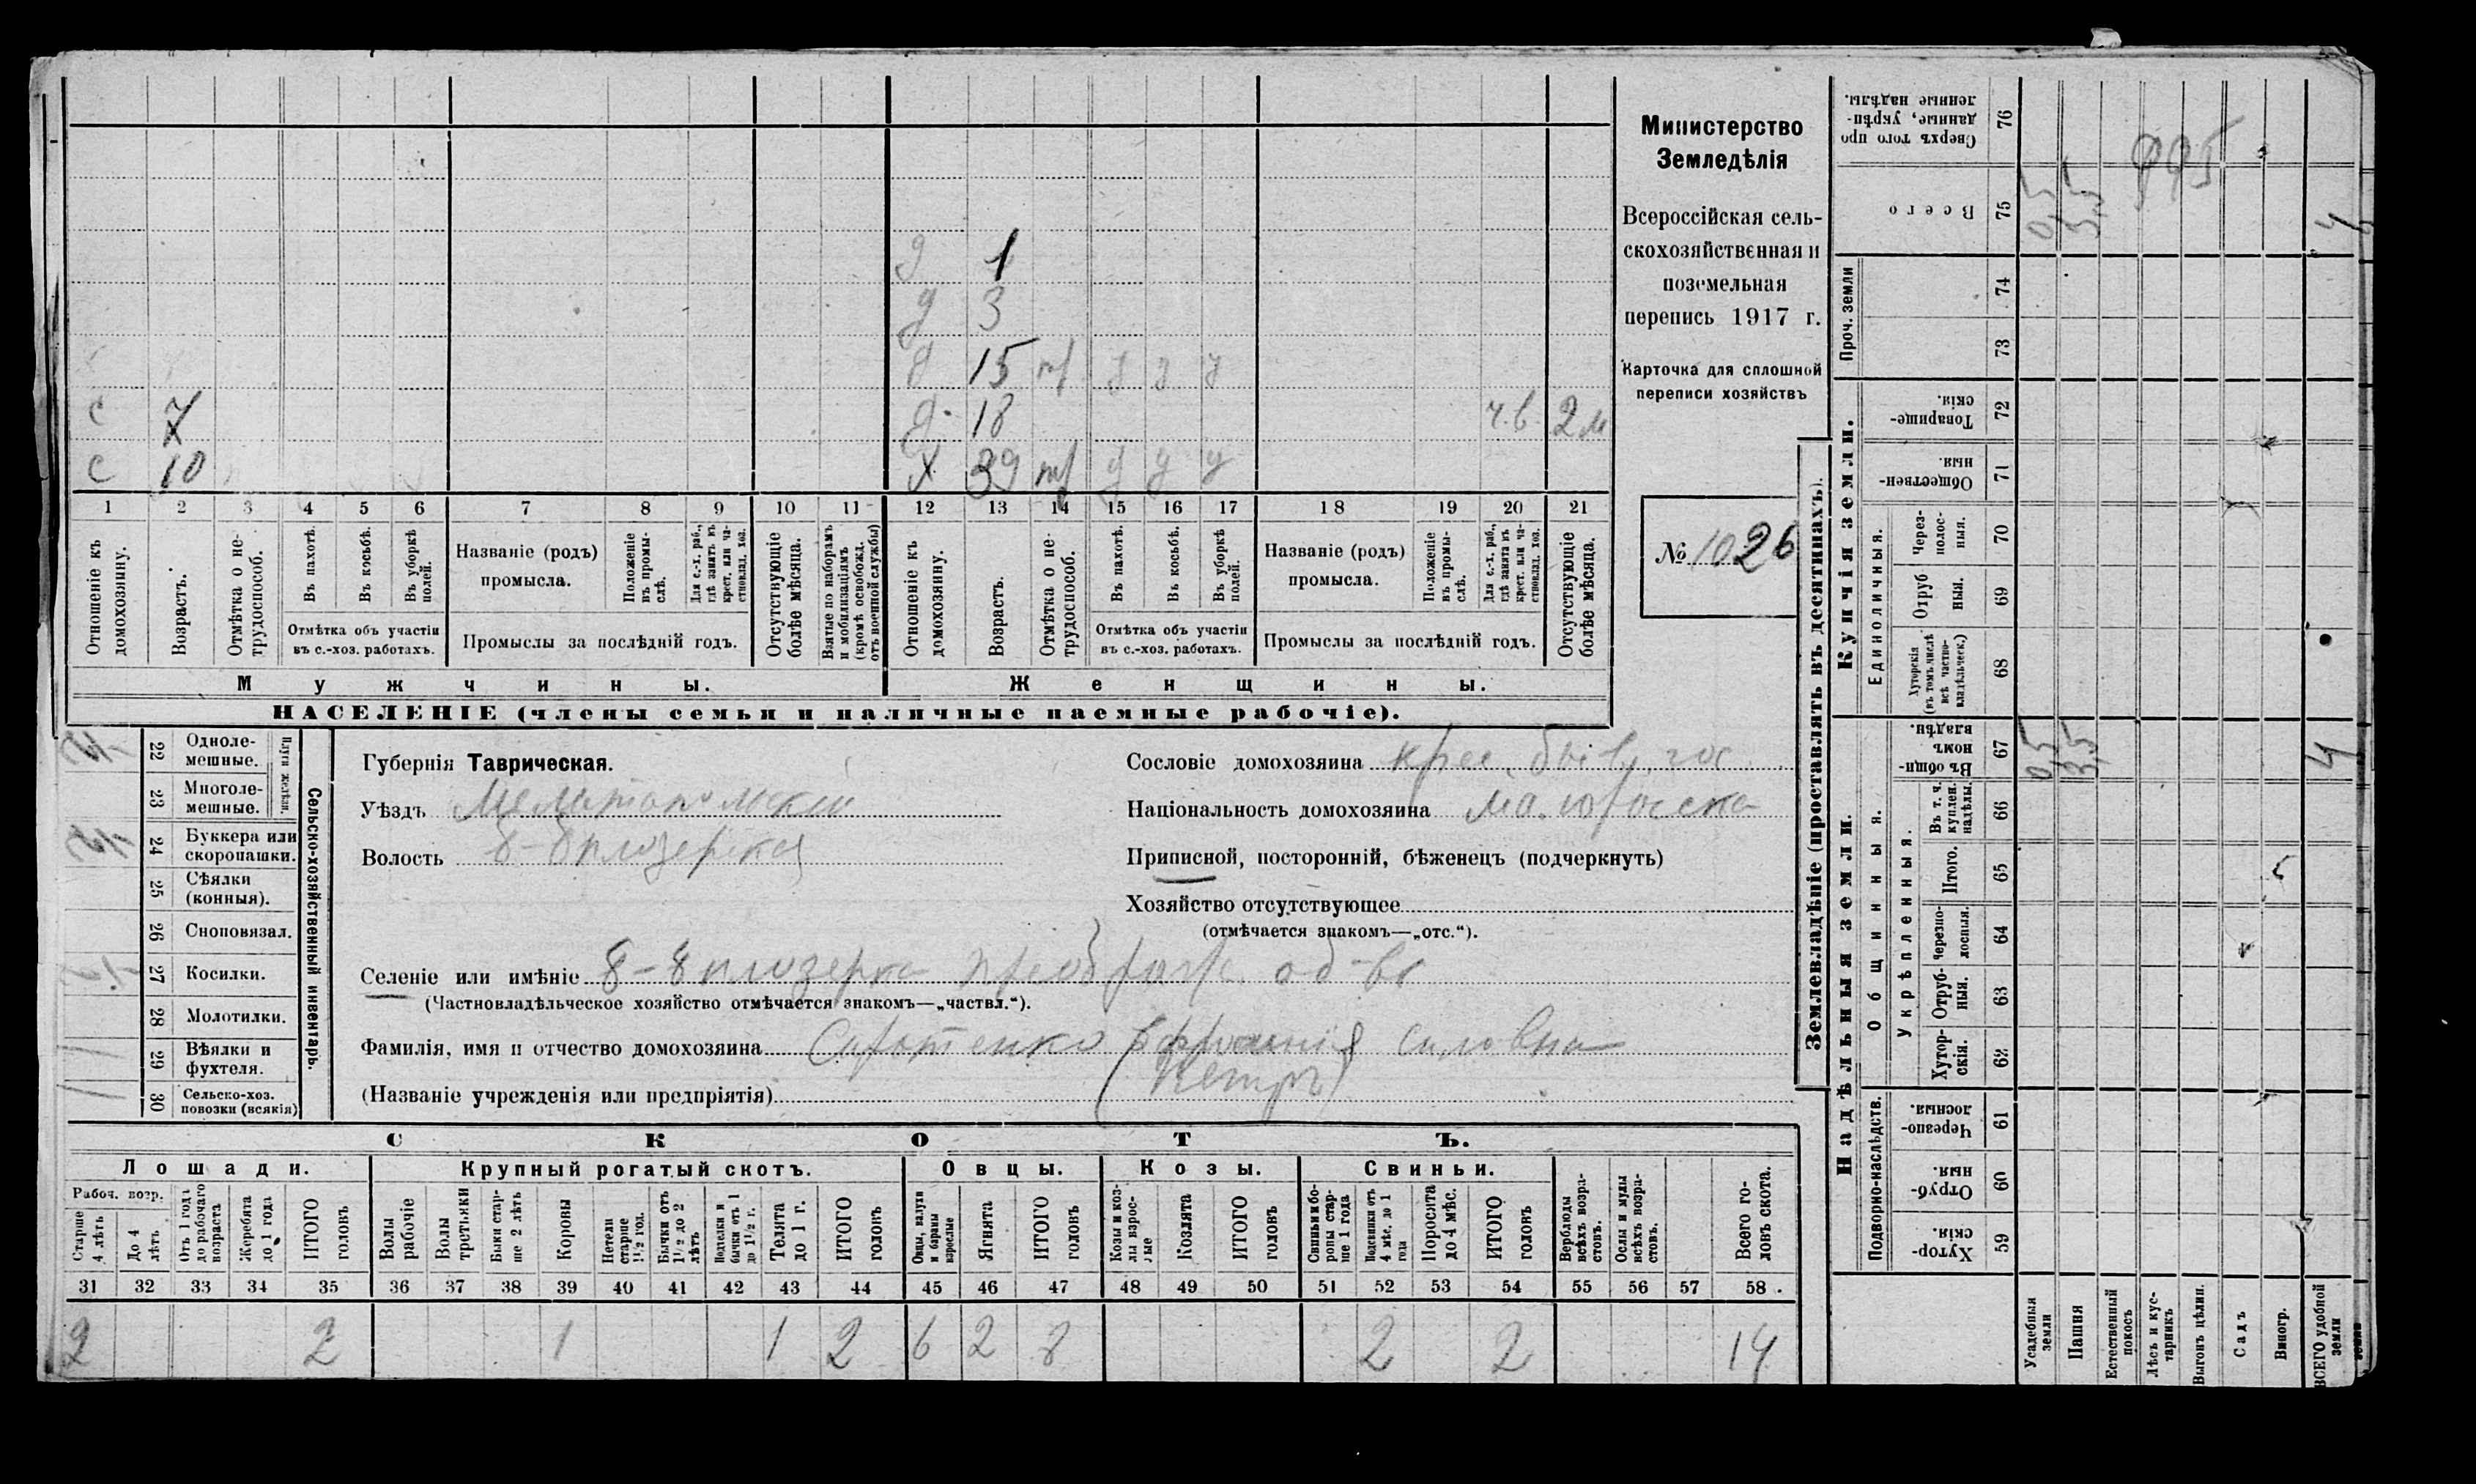 д 1
д 3
д 15 у у у
с 7 д 18 ч.в. 2 м
с 10 х 39 у у у
1 2 3 4 5 6 7 8 9 10 11 12 13 14 15 16 17 18 19 20 21
Отношеніе къ домохозяину.
Возрастъ.
Отмѣтка о не-трудоспособ.
Въ пахотѣ.
Въ косьбѣ.
Въ уборкѣ полей.
Отмѣтка объ участіи
въ с.-хоз. работахъ.
Названіе (родъ)
промысла.
Положеніе въ промы-слѣ.
Для с.-х. раб., гдѣ занятъ въ крест. или ча-стновлад. хоз.
Промыслы за послѣдній годъ.
Отсутствующіе болѣе мѣсяца.
Взятые по наборамъ и мобилизаціямъ (кромѣ освобожд. отъ военной службы)
Отношеніе къ домохозяину.
Возрастъ.
Отмѣтка о не-трудоспособ.
Въ пахотѣ.
Въ косьбѣ.
Въ уборкѣ полей.
Отмѣтка объ участіи
въ с.-хоз. работахъ.
Названіе (родъ)
промысла.
Положеніе въ промы-слѣ.
Для с.-х. раб., гдѣ занята въ крест. или ча-стновлад. хоз.
Промыслы за послѣдній годъ.
Отсутствующіе болѣе мѣсяца.
Мужчины.
Женщины.
НАСЕЛЕНІЕ (члены семьи и наличные наемные рабочіе).
Министерство
Земледѣлія
Всероссійская сель-
скохозяйственная и
поземельная
перепись 1917 г.
Карточка для сплошной
переписи хозяйствъ
№ 1026
Сельско-хозяйственный инвентарь.
Плуги желѣзн.
22 Одноле-
мешные.
23 Многоле-
мешные.
24 Буккера или
скоропашки.
25 Сѣялки
(конныя).
26 Сноповязал.
27 Косилки.
28 Молотилки.
29 Вѣялки и
фухтеля.
30 Сельско-хоз.
повозки (всякія)
Губернія Таврическая.
Уѣздъ Мелитопольскій
Волость Б-Бѣлозерская
Селеніе или имѣніе Б-Бѣлозерка
(Частновладѣльческое хозяйство отмѣчается знакомъ—„частвл.“).
Фамилія, имя и отчество домохозяина Сиротенко Силовна
(Петръ)
(Названіе учрежденія или предпріятія)
Сословіе домохозяина крес. бывш. гос
Національность домохозяина малоросска
Приписной, посторонній, бѣженецъ (подчеркнуть)
Хозяйство отсутствующее
(отмѣчается знакомъ—„отс.“).
СКОТЪ.
Лошади. Крупный рогатый скотъ. Овцы. Козы. Свиньи.
Рабоч. возр.
Старше 4 лѣтъ
До 4 лѣтъ
Отъ 1 года до рабочаго возраста
Жеребята до 1 года
ИТОГО головъ
Волы рабочіе
Волы третьяки
Быки стар-ше 2 лѣтъ
Коровы
Нетели старше 1½ год.
Бычки отъ 1½ до 2 лѣтъ
Подтелки и бычки отъ 1 до 1½ г.
Телята до 1 г.
ИТОГО головъ
Овцы, валухи и бараны взрослые
Ягнята
ИТОГО головъ
Козы и коз-лы взрос-лые
Козлята
ИТОГО головъ
Свиньи и бо-ровы стар-ше 1 года
Подсвинки отъ 4 мѣс. до 1 года
Поросята до 4 мѣс.
ИТОГО головъ
Верблюды всѣхъ возра-стовъ.
Ослы и мулы всѣхъ возра-стовъ.
Всего го-ловъ скота.
31 32 33 34 35 36 37 38 39 40 41 42 43 44 45 46 47 48 49 50 51 52 53 54 55 56 57 58
2 2 1 1 2 6 2 8 2 2 14
Землевладѣніе (проставлять въ десятинахъ).
Купчія земли.
Надѣльныя земли.
Сверхъ того про-данные, укрѣп-ленные надѣлы. 76
Всего 75 0,5 3,5 4
Проч. земли 74 73
Товарище-скія. 72
Обществен-ныя. 71
Единоличныя.
Через-полос-ныя. 70
Отруб-ныя. 69
Хуторскія (въ томъ числѣ всѣ частно-владѣльческ.) 68
Общинныя.
Въ общи-номъ владѣн. 67 0,5 3,5 4
Укрѣпленныя.
Въ т. ч. куплен. надѣлы. 66
Итого. 65
Черезпо-лосныя. 64
Отруб-ныя. 63
Хутор-скія. 62
Подворно-наслѣдств.
Черезпо-лосныя. 61
Отруб-ныя. 60
Хутор-скія. 59
Усадебныя земли
Пашня
Естественный покосъ
Лѣсъ и кус-тарникъ
Выгонъ цѣлин.
Садъ
Виногр.
ВСЕГО удобной земли